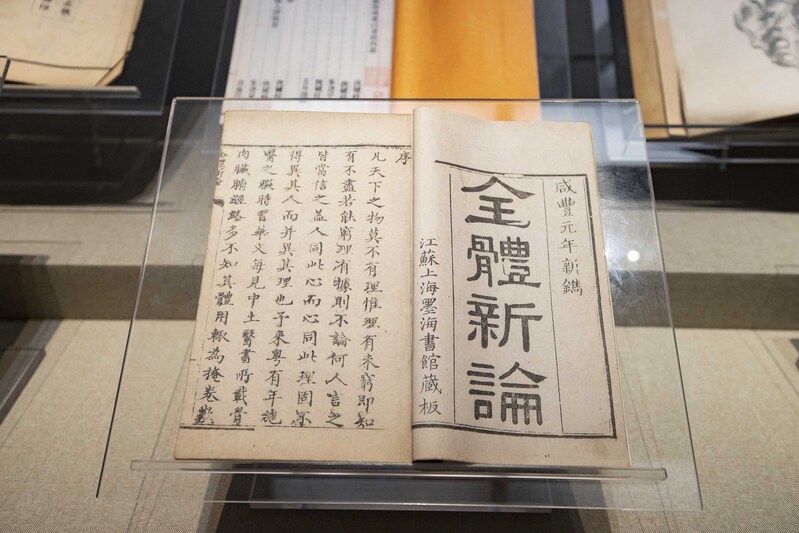 咸豐元年新鐫
全體新論
江蘇上海墨海書館藏板
序
凡天下之物莫不有理惟理有未窮即知
有不盡若能窮理有據則不論何人言之
皆當信之葢人同此心而心同此理固不
得異其人而并異其理也予來粤有年施
醫之暇時習華文每見中土醫書所載骨
肉臟腑經絡多不知其體用輒為掩卷歎